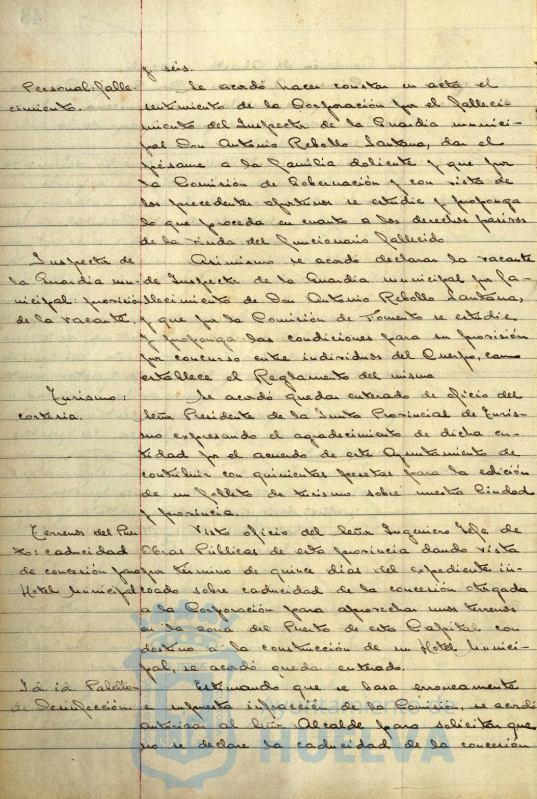 y seis.
Personal: falle-
cimiento.
Se acordó hacer constar en acta el
sentimiento de la Corporación por el falleci-
miento del Inspector de la Guardia munici-
pal Don Antonio Rebollo Santana, dar el
pésame a la familia doliente y que por
la Comisión de Gobernación y con vista de
los precedentes oportunos se estudie y proponga
lo que proceda en cuanto a los derechos pasivos
de la viuda del funcionario fallecido
Inspector de
la Guardia mu-
nicipal: provisión
de la vacante.
Asimismo se acordó declarar la vacante
de Inspector de la Guardia municipal por fa-
llecimiento de Don Antonio Rebollo Santana,
y que por la Comisión de Fomento se estudie
y proponga las condiciones para su provisión
por concurso entre individuos del Cuerpo, como
establece el Reglamento del mismo
Turismo:
cortesia.
Se acordó quedar enterado de oficio del
Señor Presidente de la Junta Provincial de Turis-
mo expresando el agradecimiento de dicha en-
tidad por el acuerdo de este Ayuntamiento de
contribuir con quinientas pesetas para la edición
de un folleto de turismo sobre nuestra Ciudad
y provincia.
Terrenos del Puer-
to: caducidad
de concesión para
Hotel Municipal
Visto oficio del Señor Ingeniero Jefe de
Obras Públicas de esta provincia dando vista
por término de quince dias del expediente in-
coado sobre caducidad de la concesión otorgada
a la Corporación para aprovechar unos terrenos
en la zona del Puerto de esta Capital con
destino a la construcción de un Hotel Munici-
pal, se acordó quedar enterado.
Id. id. Pabellon
de Desinfección
Estimando que se basa erroneamente
e supuesta infracción de la Comisión, se acordó
autorizar al Señor Alcalde para solicitar que
no se declare la caducidad de la concesión
Ayuntamiento de
HUELVA